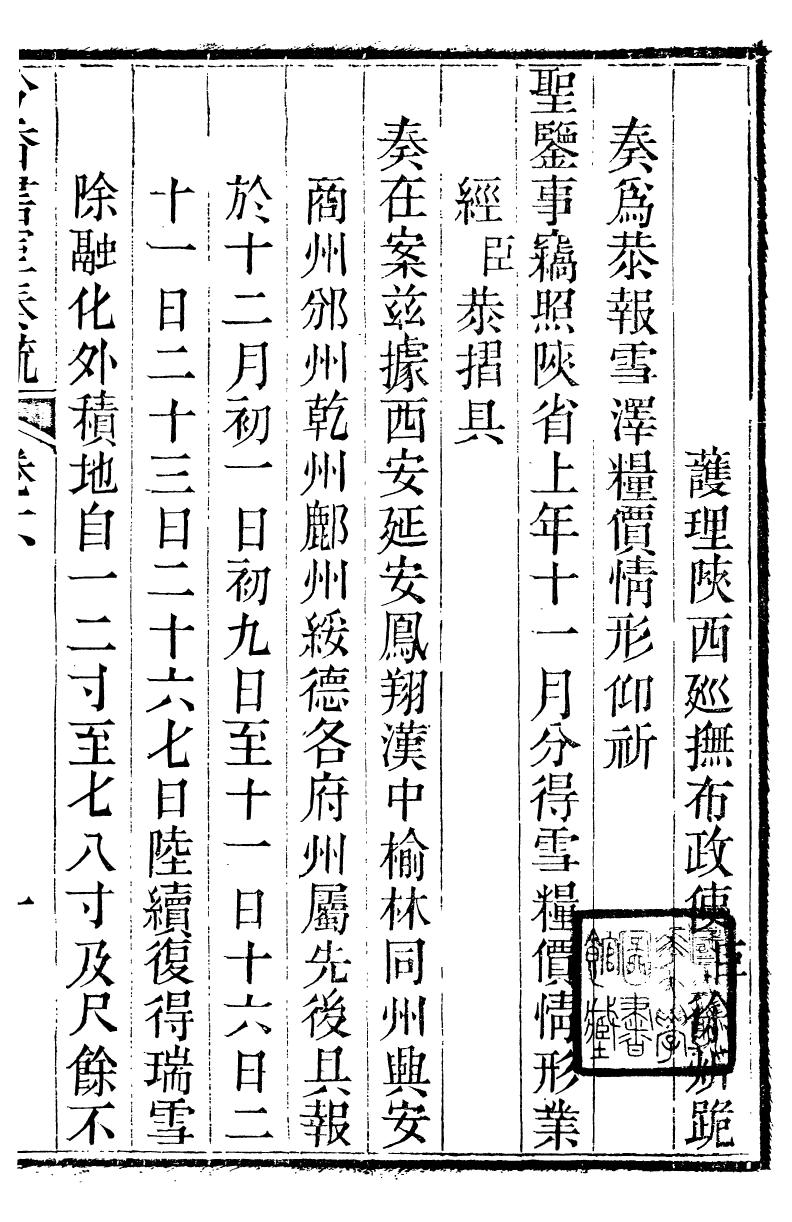 護理陝西廵撫布政使臣徐炘跪
奏爲恭報雪澤糧價情形仰祈
聖鑒事竊照陝省上年十一月分得雪糧價情形業
經臣恭摺具
奏在案兹據西安延安鳳翔漢中榆林同州興安
商州邠州乾州鄜州綏德各府州屬先後具報
於十二月初一日初九日至十一日十六日二
十一日二十三日二十六七日陸續復得瑞雪
除融化外積地自一二寸至七八寸及尺餘不
奏疏
卷六
一